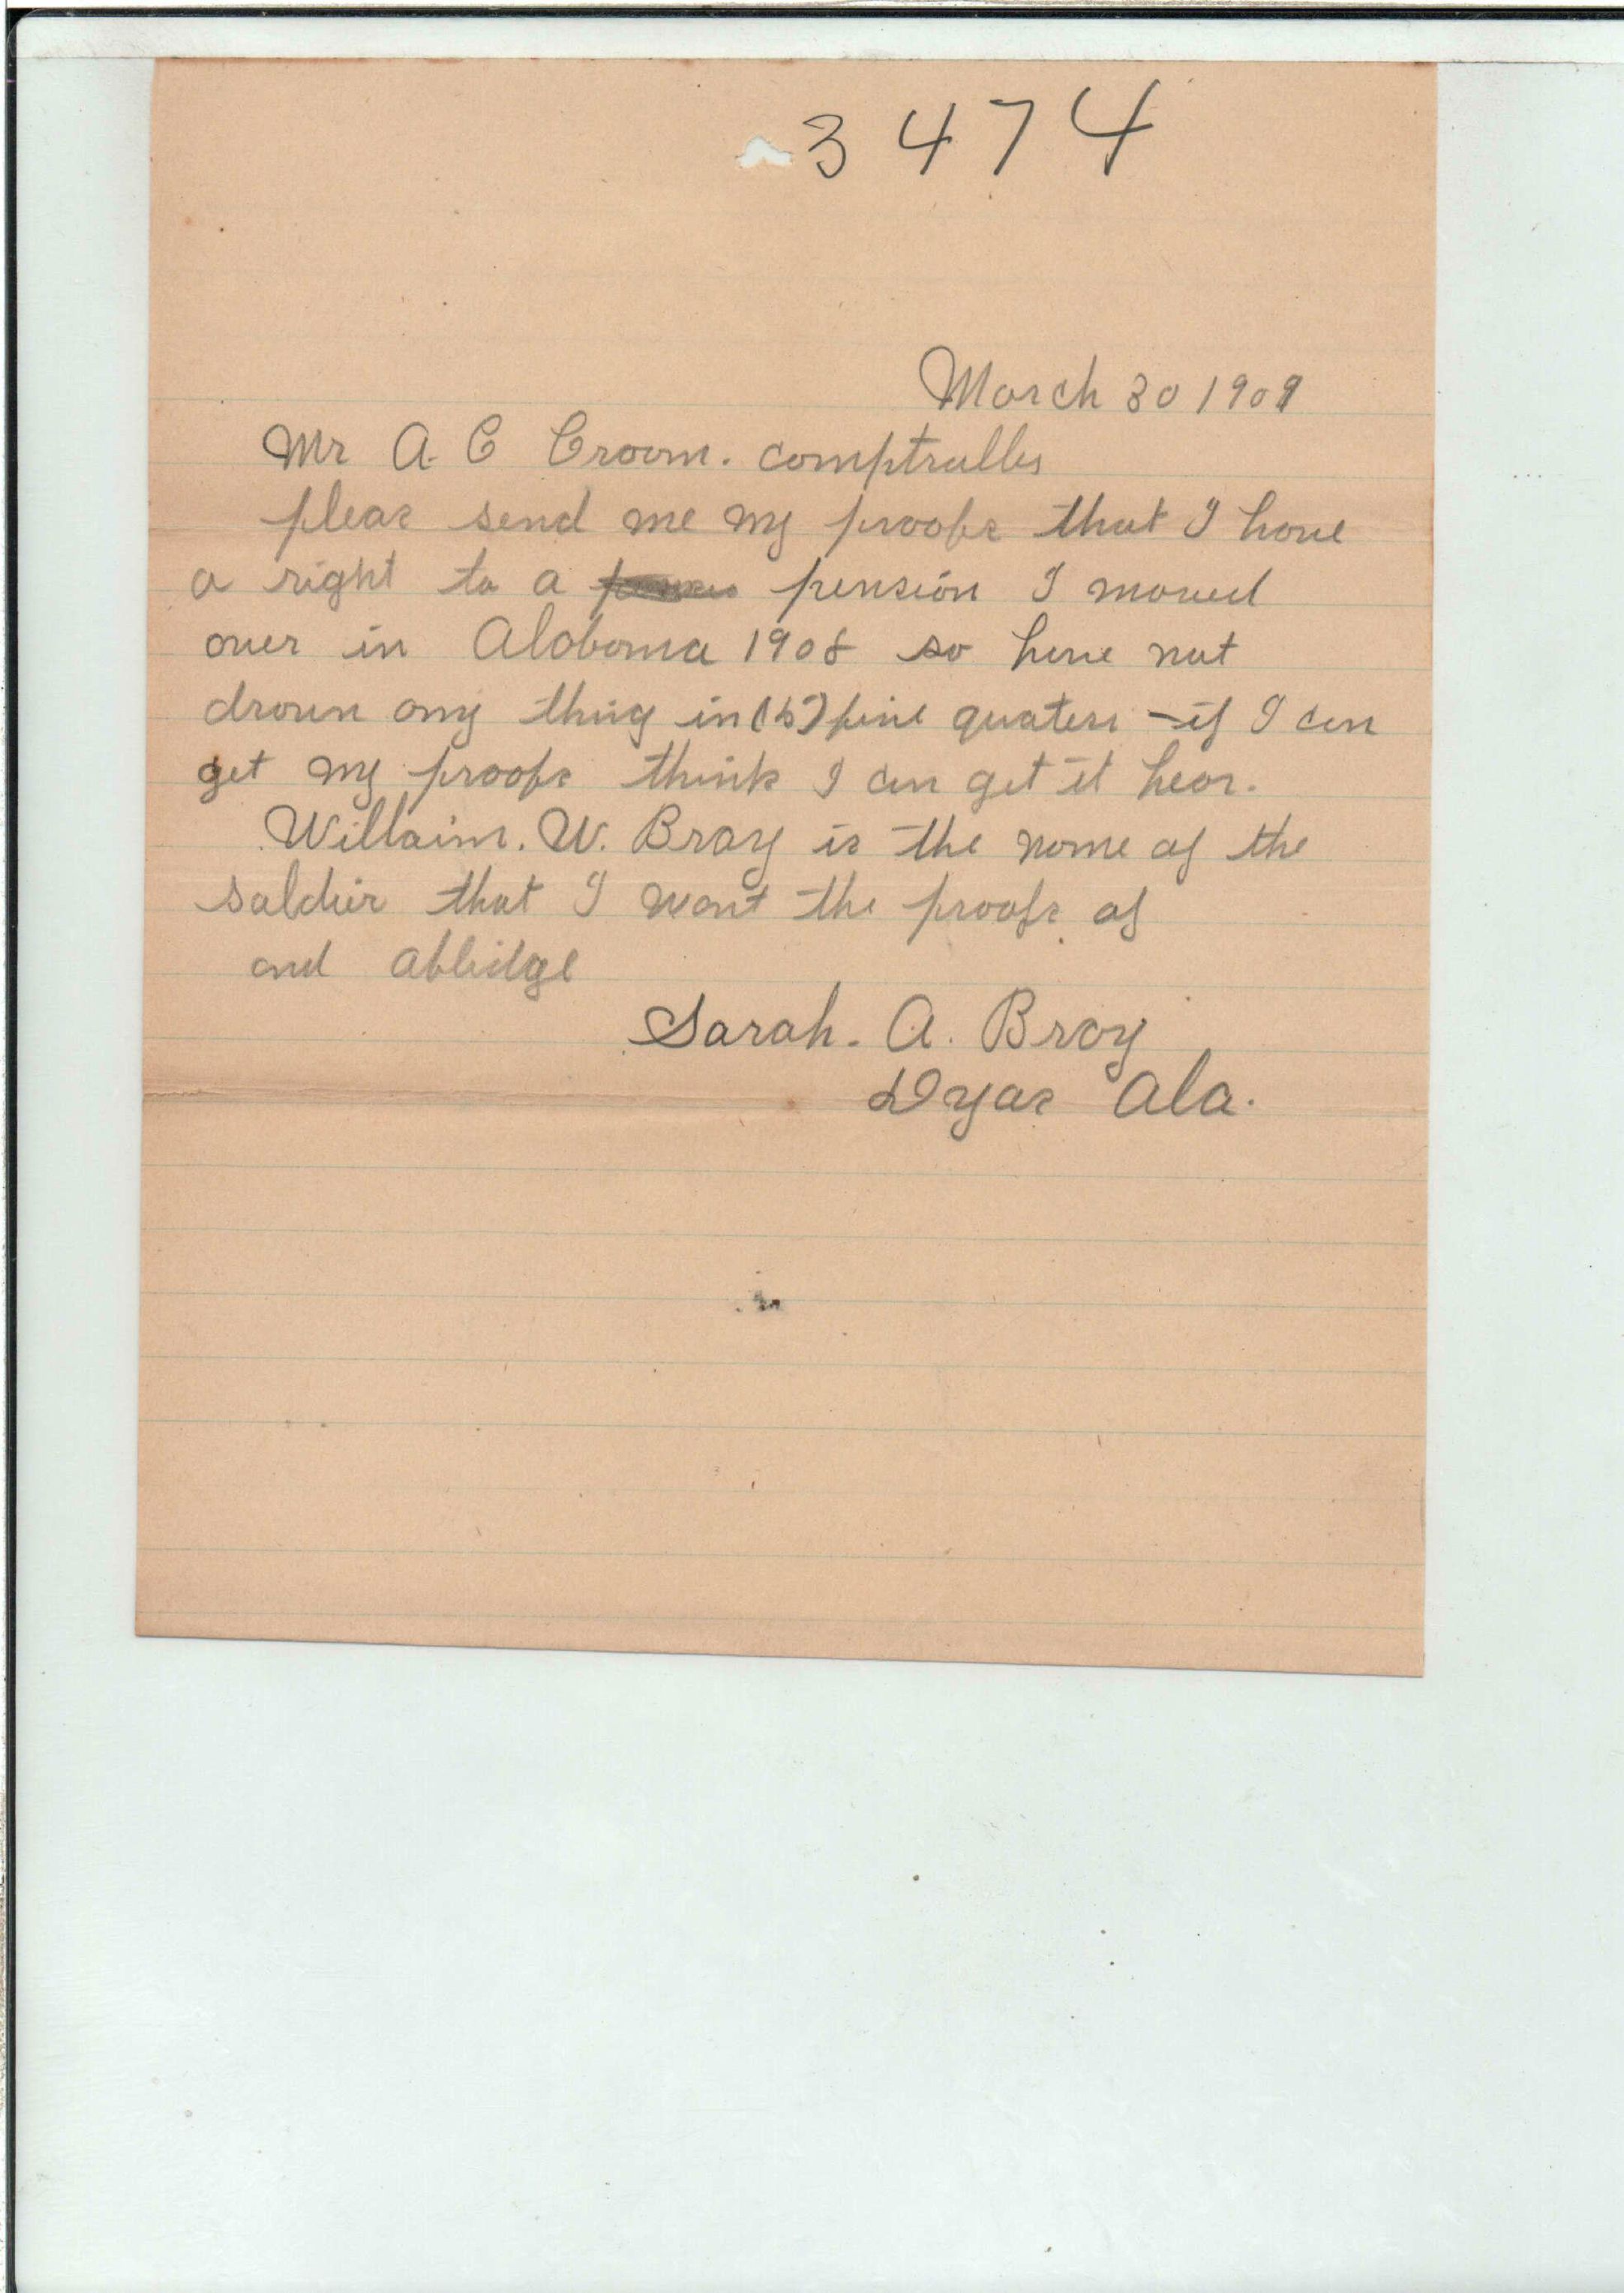 3474
March 30 1909
Mr A. C Croom. comptroller
pleas send me my proofs that I have
a right to a pension I moved
over in Alabama 1908 so have not
drown any thing in (5) five quaters - if I can
get my proofs think I can get it hear.
Willaim. W. Bray is the name of the
soldier that I want the proofs of
and abbidge
Sarah. A. Bray
Dyas Ala.